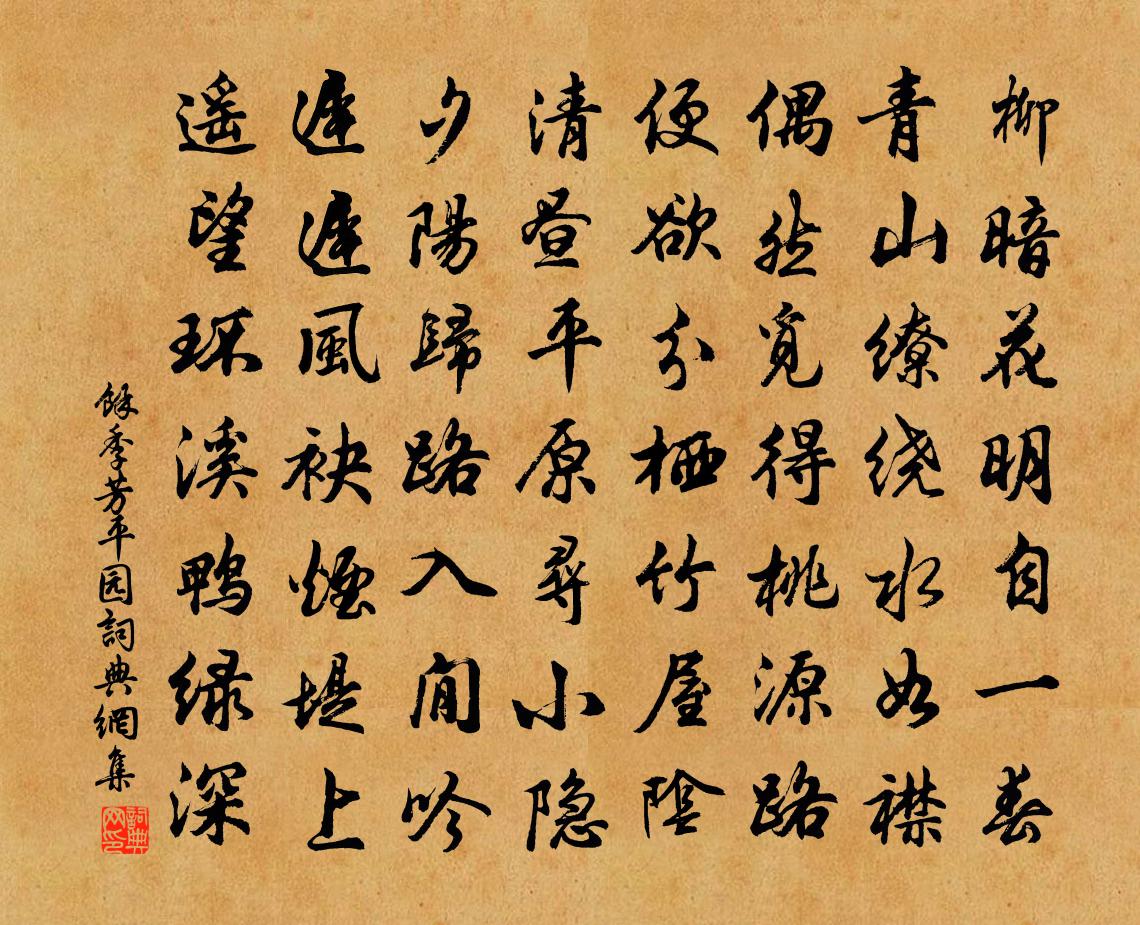 柳暗花明自一春
青山缭绕水如襟
偶然覓得桃源路
便欲分栖竹屋陰
清昼平原尋小隐
夕陽歸路入閒吟
遲遲風袂煙堤上
遥望环溪鴨绿深
餘季芳平园詞典網集
詞典网印